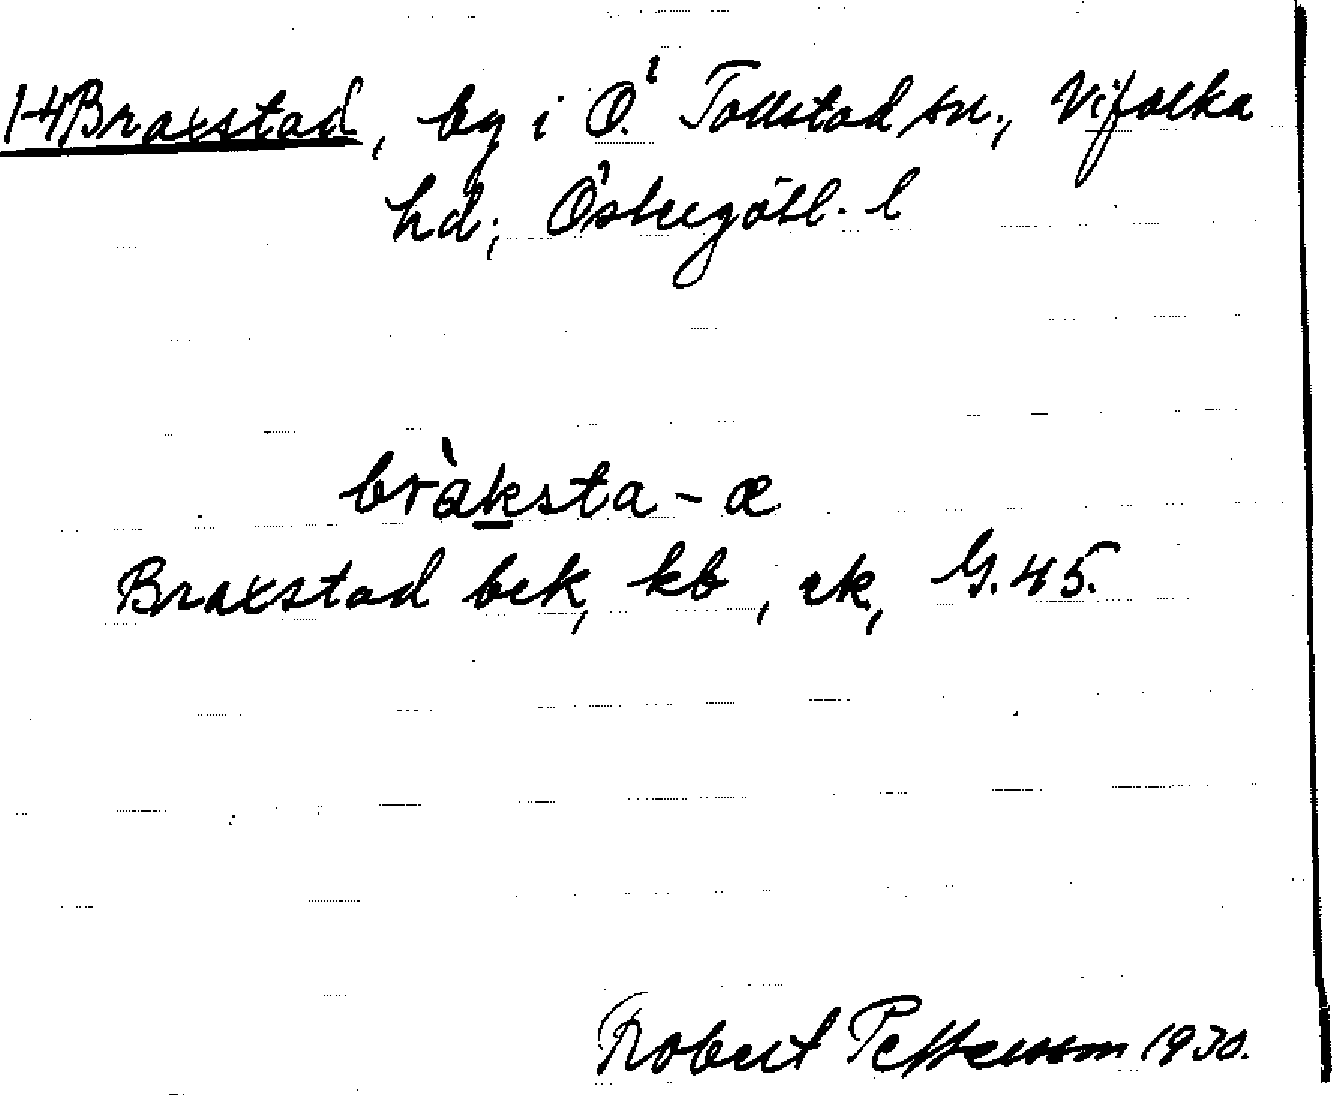 1-4 Braxstad, by i Ö. Tollstad sn., Vifolka
hd; Östergötl. l
bràksta - æ
Braxstad bck, kb, ek, G. 45.
Robert Pettersson 1930.